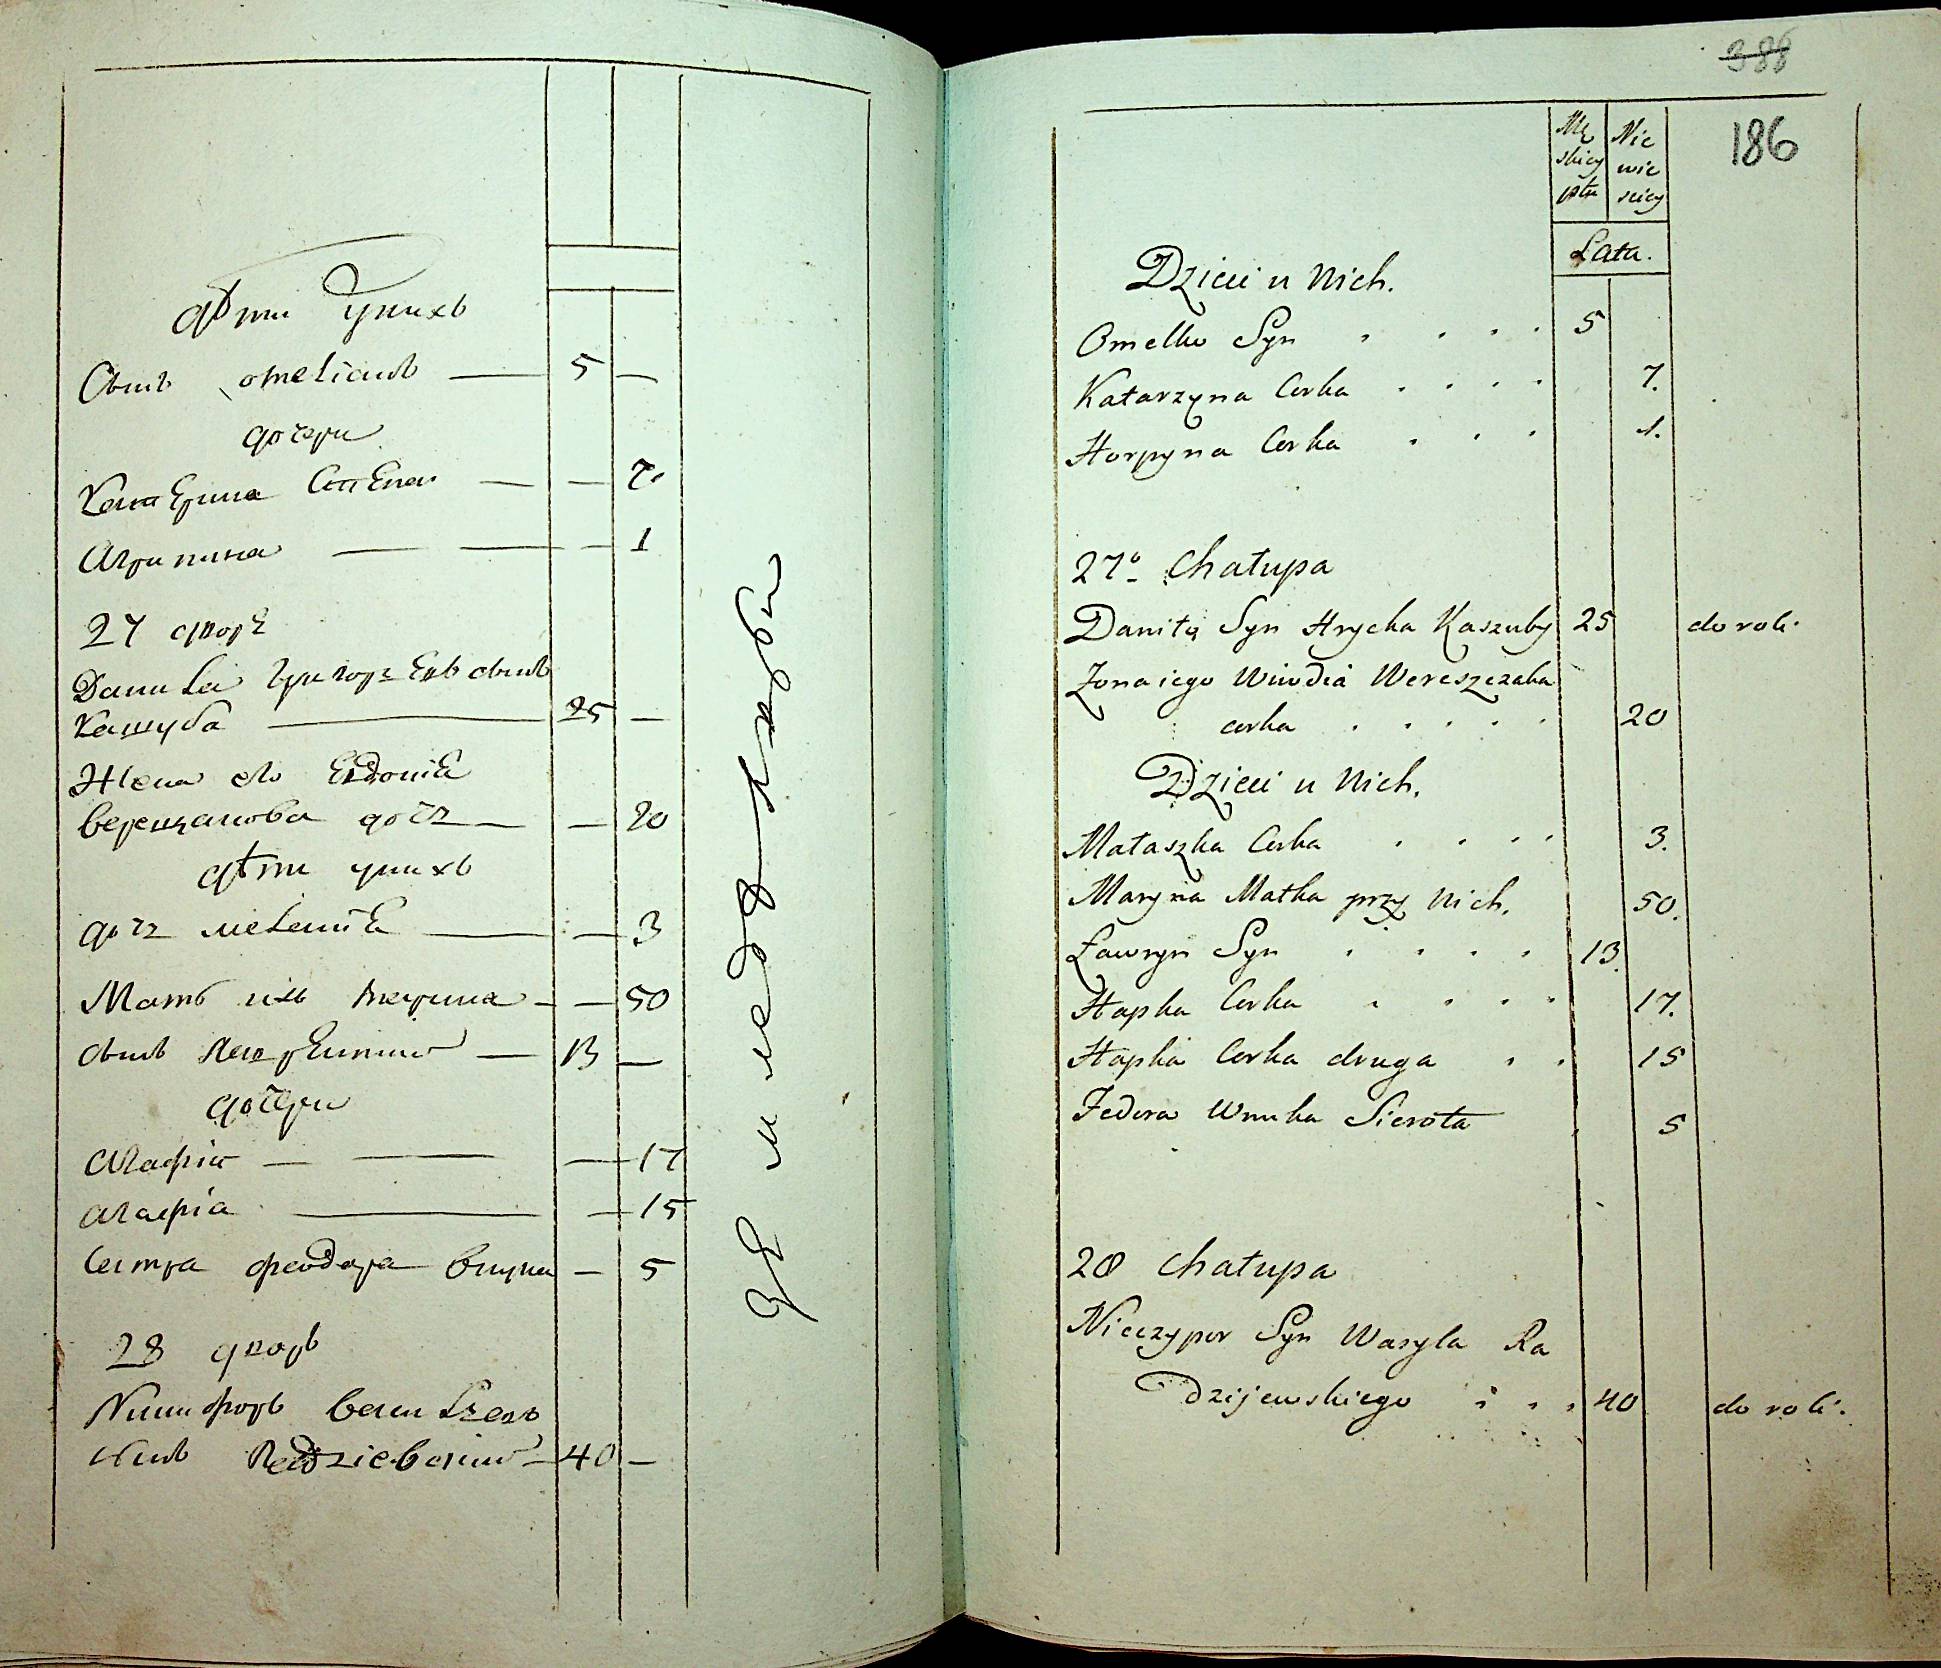 дѣти унихъ
Сынъ омеліанъ 5
дочери
Катерина Степа 7.
Агрипина 1
27 дворъ
Данила Григорьевъ сынъ
Кашуба 25
Жена его Евдокія
Верещакова дочь 20
дѣти унихъ
дочь меланія 3
Мать ихъ марина 50
сынъ Лаврентій 13
дочери
Агафія 17
агафія 15
феодора внука 5
28 дворъ
Никифоръ Василіевъ
сынъ Радзіевскій 40
Землед
388
186
Mę Nie
skiey wie
płci sciey
Lata.
Dzieci u Nich.
Omelko Syn 5
Katarzyna Corka 7.
Horpyna Corka 1.
27o Chałupa
Daniło Syn Hrycka Kaszuby 25 do roli.
Zona iego Wiwdia Wereszczaka
corka 20
Dzieci u Nich.
Małaszka Corka 3.
Maryna Matka przy Nich. 50.
Ławryn Syn 13.
Hapka Corka 17.
Hapka Corka druga 15
Fedora Wnuka Sierota 5
28 Chałupa
Nieczypor Syn Wasyla Ra
dzijewskiego 40 do roli.